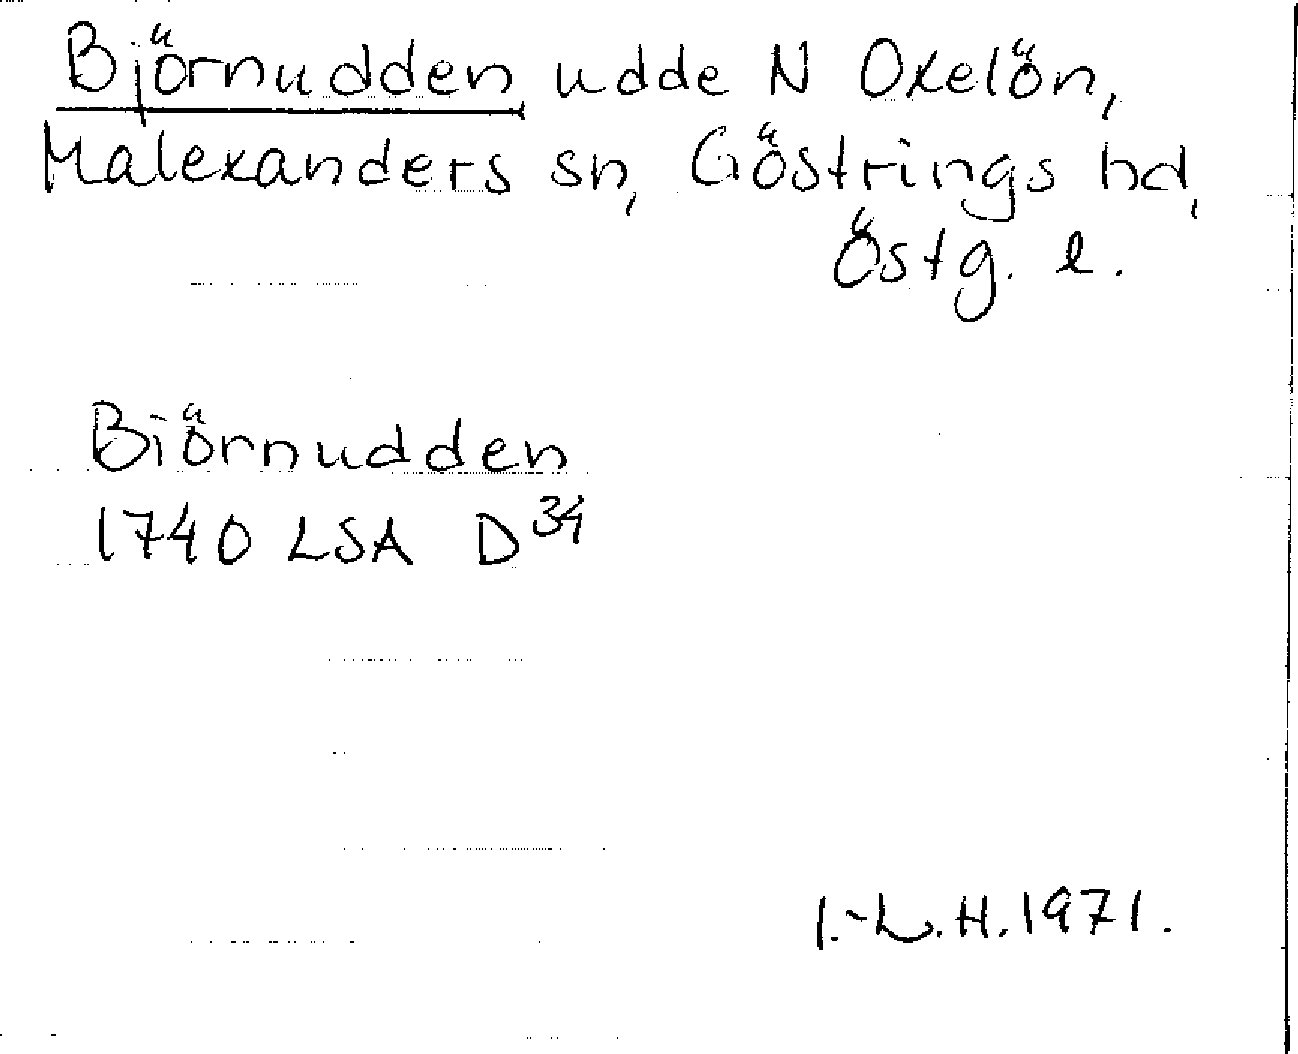 Björnudden udde N Oxelön,
Malexanders sn, Göstrings hd,
Östg. l.
Biörnudden
1740 LSA D34
I.-L.H.1971.